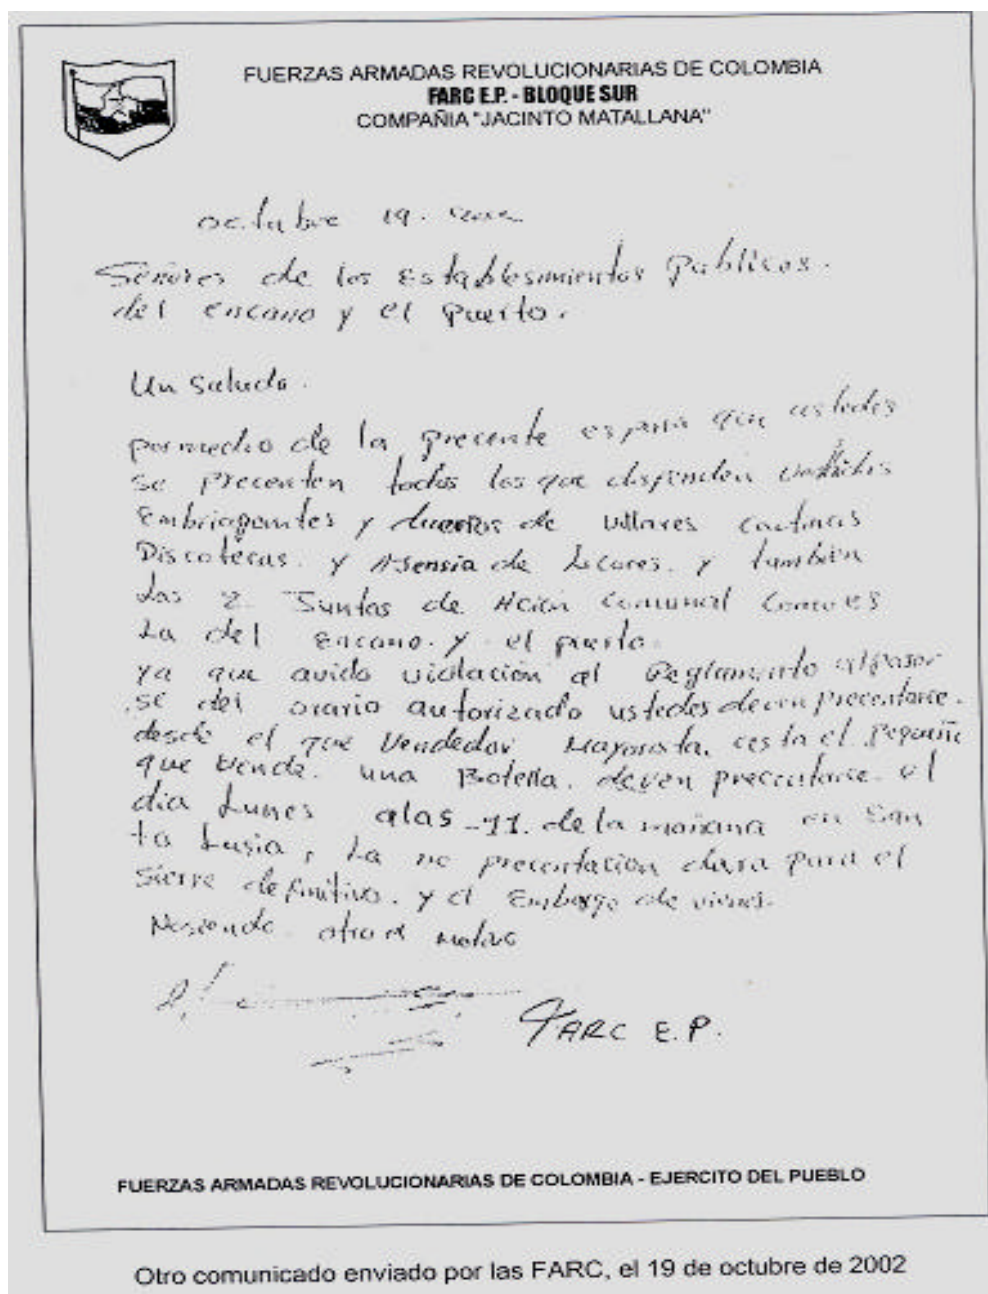 FUERZAS ARMADAS REVOLUCIONARIAS DE COLOMBIA
FARC E.P. - BLOQUE SUR
COMPAÑIA "JACINTO MATALLANA"
octubre 19.
Señores de los Establesimientos Publicos.
del encano y el Puerto.
Un Saludo.
por medio de la precente es para que ustedes
se precenten todos los que dispenden
Embriagantes y dueños de villares cantinas
Discotecas. y Asensia de Licores. y tambien
Las 2 Juntas de Acion Comunal Como es
La del encano. y el puerto.
ya que avido violación al Reglamento al pasar
se del orario autorizado ustedes deven precentarce.
desde el que Vendedor Mayorista, asta el Pequeño
que vende una Botella. deven precentarce el
dia Lunes alas -11. de la mañana en San
ta Lusia, La no precentacion dara para el
Sierre definitivo. y el Embargo de vienes.
Nosiendo otro el motivo
FARC E.P.
FUERZAS ARMADAS REVOLUCIONARIAS DE COLOMBIA - EJERCITO DEL PUEBLO
Otro comunicado enviado por las FARC, el 19 de octubre de 2002